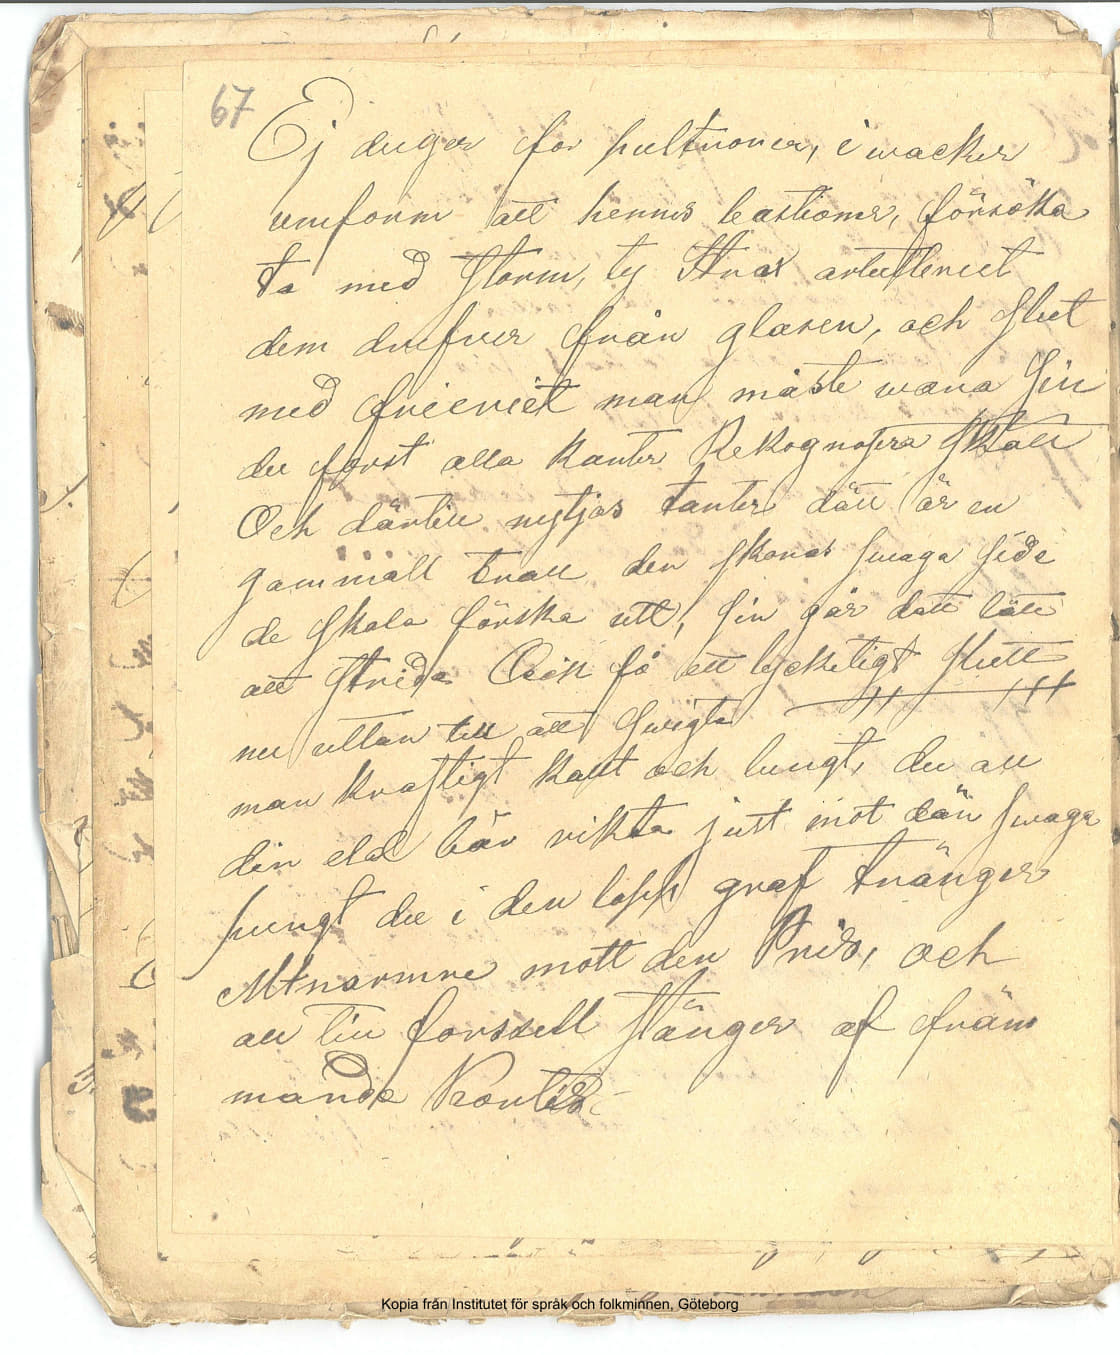 67
Ej duger for pultroner, i wacker
uniform att hennes bastioner, försöka
ta med storm, ty Strax artulleriet
dem drifver från glasen, och slut
med frieriet man måste wara fin
du först alla kanter Rekognosera skall
Och därtill nytjas tanter dätt är en
gammall trall den skönas swaga sida
de skola förska utt, sin går dätt lätt
att strida Och få ett lyckeligt slutt
nu uttan till att swigta
man kraftigt kallt och lungt, du all
din eld bör rikta just mot dän swaga
pungt du i den löpp graf tränger
allt närmre mott den Pris, och
all tillforssell stänger af främ
mande Kontis
Kopia från Institutet för språk och folkminnen, Göteborg